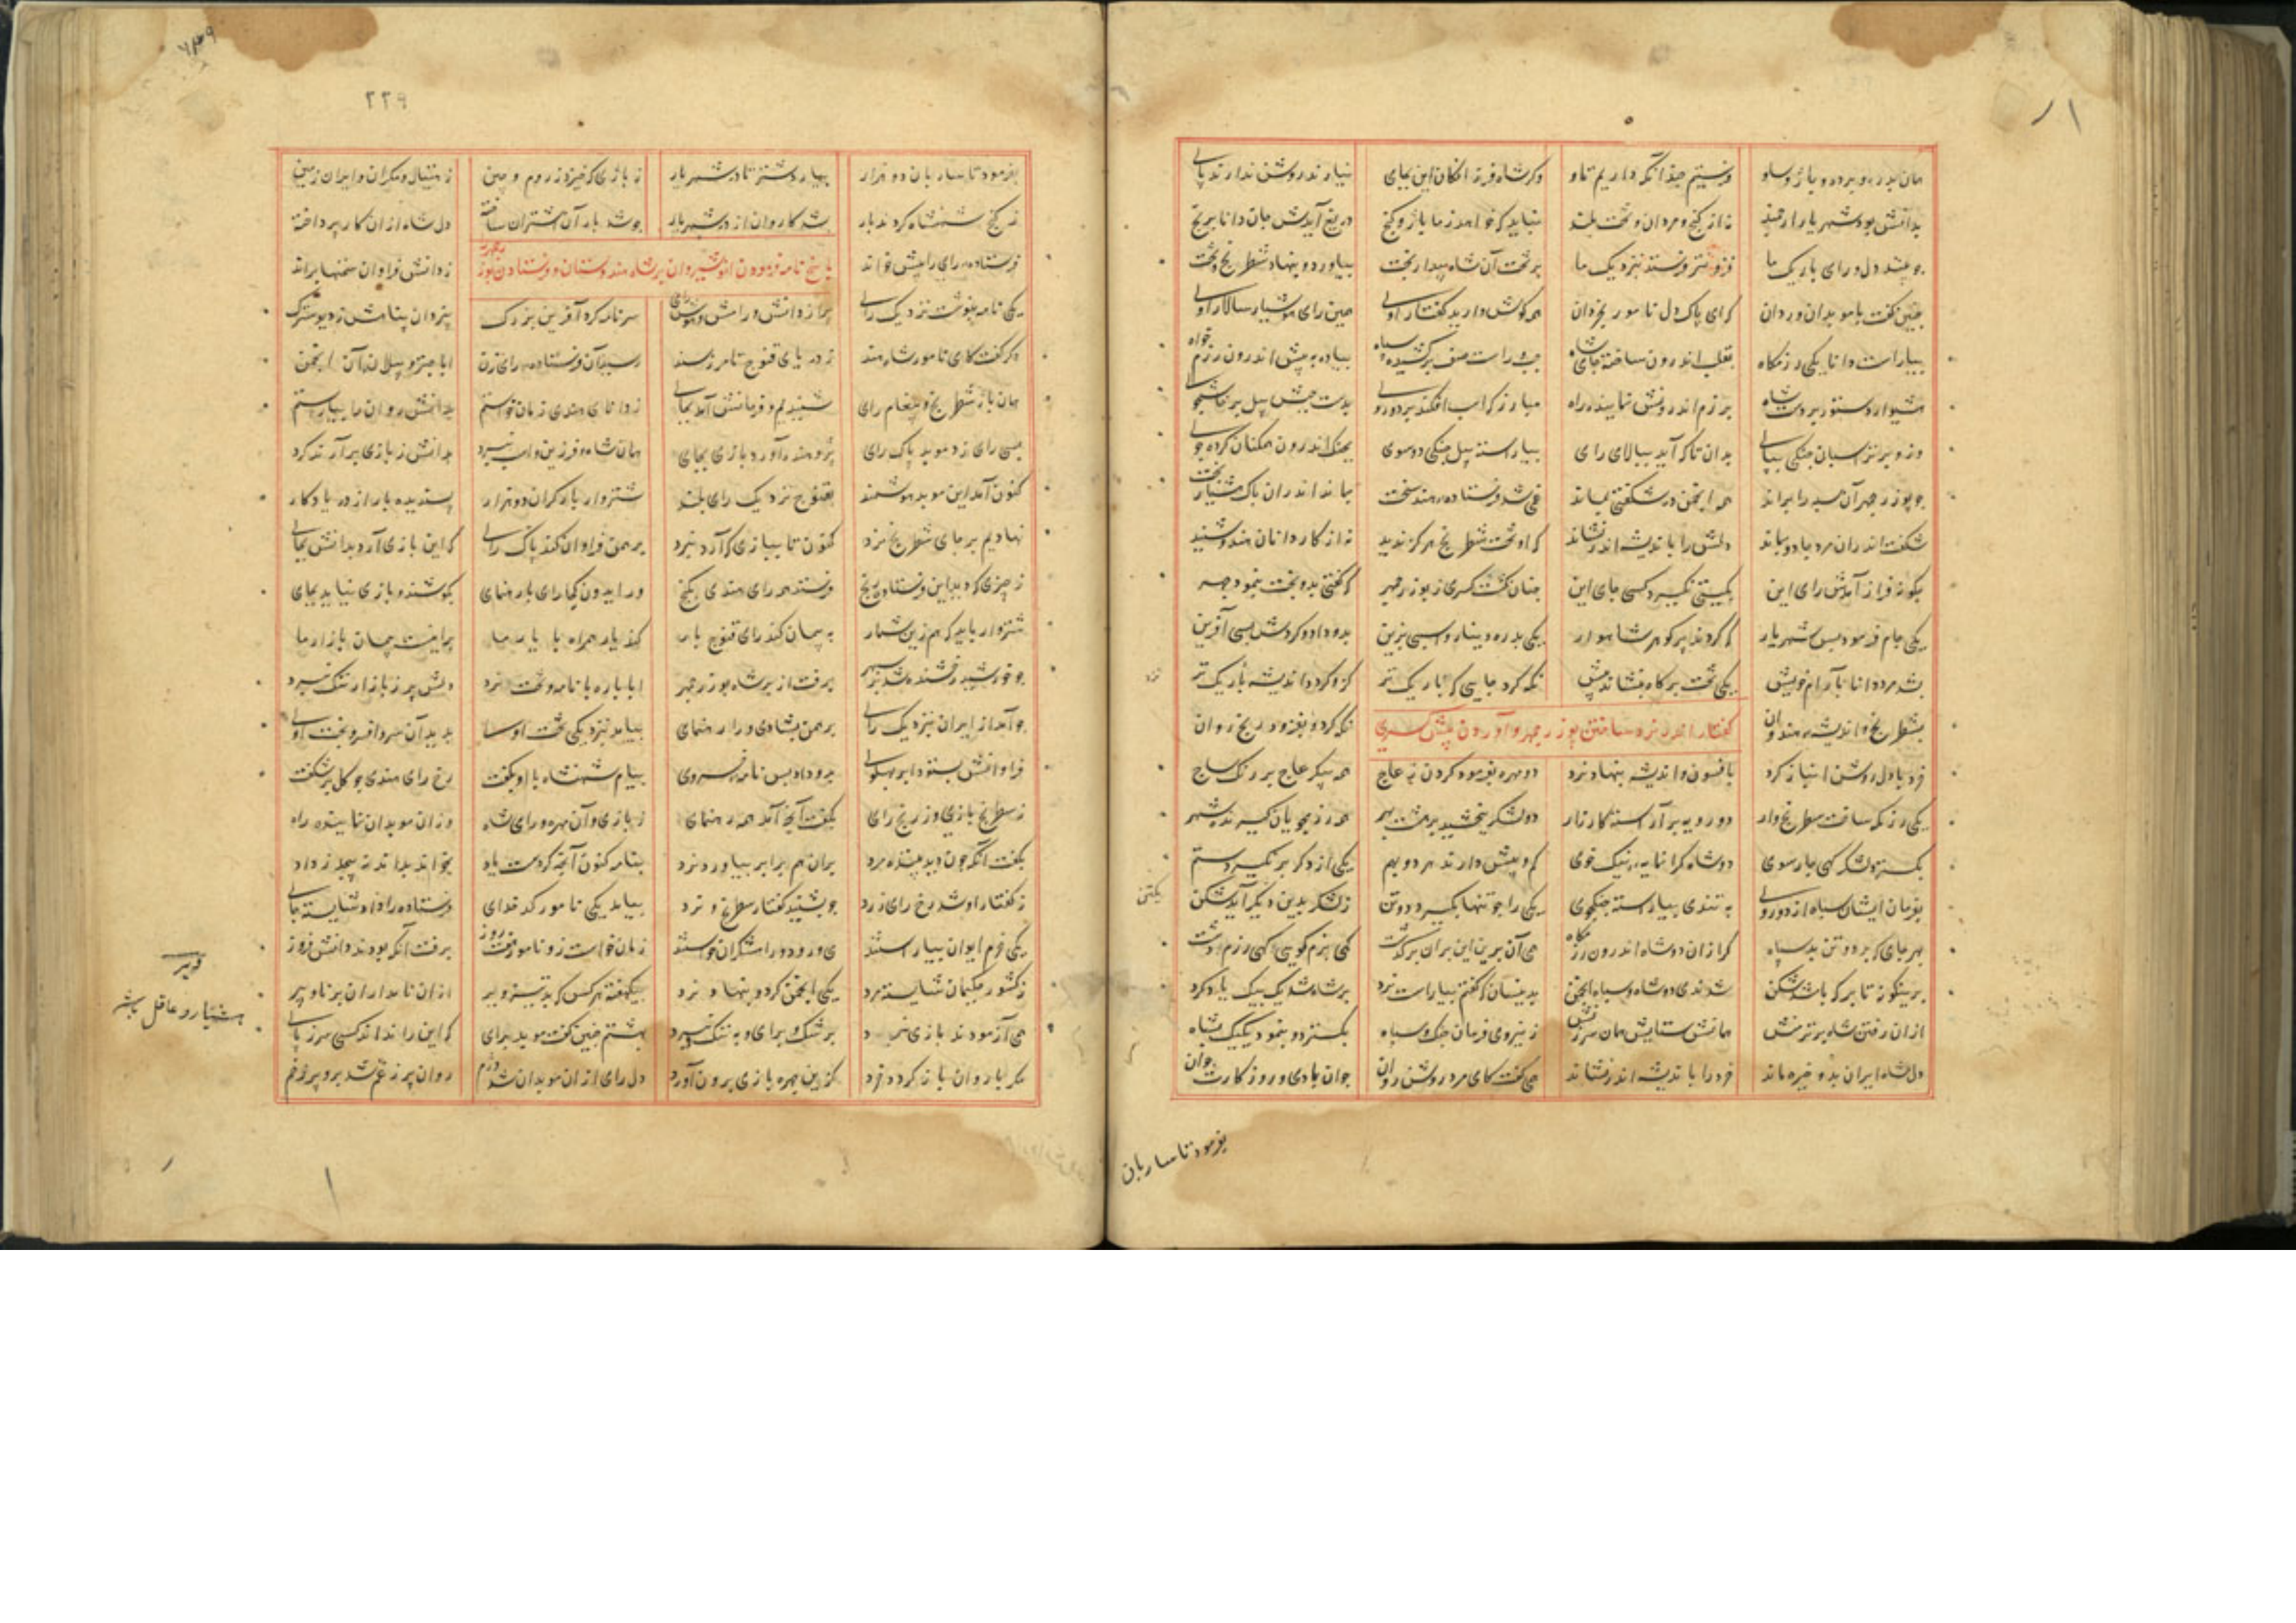 همان بدره و برده و باژ و ساو فرستیم چندانکه داریم تاو وکر شاه و فرزانکان این بجای نیارند روشن ندارند رای
بدانش بود شهریار ارجمند نه از کنج و مردان و تخت بلند نباید که خواهد ز ما باژ و کنج دریغ آیدش جان دانا برنج
چو بیند دل و رای باریک ما فزونتر فرستد بنزدیک ما بر تخت آن شاه بیدار بخت بیاورد و بنهاد شطرنج و تخت
چنین کفت با موبدان و ردان که ای پاک دل نامور بخردان همه کوش دارید کفتار اوی همین رای هوشیار سالار اوی
بیاراست دانا یکی رزمکاه بقلب اندرون ساخته جای شاه چپ و راست صف برکشیده سپاه پیاده به پیش اندرون رزم خواه
هشیوار دستور بر دست شاه برزم اندرونش نماینده راه مبارز که اسب افکند بر دو روی بدست چپش پیل پرخاشجوی
وزو برتر اسبان جنکی بپای بدان تا که آید ببالای رای بیاراسته پیل جنکی دو سوی بجنک اندرون همکنان کرده جوی
چو بوزرجمهر آن سپه را براند همه انجمن در شکفتی بماند غمی شد فرستاده هند سخت بماند اندران پاک هشیار بخت
شکفت اندران مرد جادو بماند دلش را باندیشه اندر نشاند که او تخت شطرنج هرکز ندید نه از کاردانان هندو شنید
چکونه فراز آمدش رای این بکیتی نکیرد کسی جای این چنان کشت کسری ز بوزرجمهر که کفتی بدو بخت بنمود چهر
یکی جام فرمود پس شهریار که کردند پر کوهر شاهوار یکی بدره دینار و اسپی بزین بدو داد و کردش بسی آفرین
بشد مرد دانا بآرام خویش یکی تخت و پرکار بنشاند پیش نکه کرد جایی که باریک تر کزو کرد اندیشه باریک تر
بشطرنج و اندیشه هندوان نکه کرد و بفزود رنج روان
کفتار اندر نرد ساختن بوزرجمهر و آوردن پیش کسری
خرد با دل روشن انباز کرد بافسون و اندیشه بنهاد نرد دو مهره بفرمود کردن ز عاج همه پیکر عاج بر رنک ساج
یکی رزمکه ساخت شطرنج وار دو رویه برآراسته کارزار دو لشکر ببخشید بر هشت بهر همه رزم جویان کیرنده شهر
بکسترد لشکر کهی چارسوی دو شاه کرانمایه نیک خوی کم و بیش دارند هر دو بهم یکی از دکر بر نکیرد ستم
بفرمان ایشان سپاه از دو روی به تندی بیاراسته جنکجوی یکی را چو تنها بکیرد دو تن ز لشکر بدین دیکر آید شکن
بهر جای که بر دو تن بد سپاه کرازان دو شاه اندرون رزمکاه همی آن برین این بران برکذشت کهی بزم کویی کهی رزم و دشت
برینکونه تا بر که باشد شکن شدندی دو شاه و سپاه انجمن بدینسان که کفتم بیاراست نرد بر شاه شد یک بیک یاد کرد
ازان رفتن شاه برتر منش همانش ستایش همان سرزنش ز نیروی و فرمان جنک و سپاه بکسترد و بنمود یک یک بشاه
دل شاه ایران بدو خیره ماند خرد را باندیشه اندر نشاند همی کفت کای مرد روشن روان جوان بادی و روزکارت جوان
یکتن
بفرمود تا ساربان
۲۲۹
بفرمود تا ساربان دو هزار بیارد شتر تا در شهریار ز باژی که خیزد ز روم و چین ز هیتال و مکران و ایران زمین
ز کنج شهنشاه کردند بار بشد کاروان از در شهریار چو شد بار آن اشتران ساخته دل شاه ازان کار پرداخته
فرستاده رای را پیش خواند ز دانش فراوان سخنها براند
پاسخ نامه فرمودن انوشیروان بر شاه هندوستان و فرستادن بوزرجمهر
یکی نامه بنوشت نزدیک رای پر از دانش و رامش و هوش و رای سر نامه کرد آفرین بزرک بیزدان پناهش ز دیو سترک
دکر کفت کای نامور شاه هند ز دریای قنوج تا مرز سند رسید آن فرستاده رای زن ابا چتر و پیلان آن انجمن
همان باژ شطرنج و پیغام رای شنیدیم و فرمانش آمد بجای ز دانای هندی زمان خواستم بدانش روان ها بیاراستم
بسی رای زد موبد پاک رای پژوهید و آورد بازی بجای همان شاه و فرزین و اسب نبرد بدانش ز بازی برآرند کرد
کنون آمد این موبد هوشمند بقنوج نزدیک رای بلند شتروار بار کران دو هزار پسندیده بار از در یادکار
نهادیم بر جای شطرنج نرد کنون تا ببازی که آرد نبرد برهمن فراوان کند پاک رای که این بازی آرد بدانش بجای
ز چیزی که دید این فرستاده رنج فرستد همه رای هندی بکنج ورایدون کجا رای با رهنمای بکوشند و بازی نیاید بجای
شتروار باید که هم زین شمار به پیمان کند رای قنوج بار کند بار همراه با بار ما برینست پیمان بازار ما
چو خورشید رخشنده شد بر سپهر برفت از بر شاه بوزرجمهر ابا باره با نامه و تخت نرد دلش پر ز بازار ننک نبرد
چو آمد از ایران بنزدیک رای برهمن بشادی ورا رهنمای بیامد بنزدیکی تخت اوی بدید آن سر و افسر و بخت اوی
فراوانش بستود بر پهلوی بدو داد پس نامه خسروی پیام شهنشاه با او بکفت رخ رای هندی چو کل برشکفت
ز شطرنج بازی و ز رنج رای بکفت آنچ آمد همه رهنمای ز بازی و آن مهره و رای شاه وزان موبدان نماینده راه
بکفت آنکه چون دید بیننده مرد بران هم برابر بیاورد نرد بنامه کنون آنچه کردست یاد بخواند بداند نه پیچد ز داد
ز کفتار او شد رخ رای زرد چو بشنید کفتار شطرنج و نرد بیامد یکی نامور کدخدای فرستاده را داد شایسته جای
یکی خرم ایوان بیاراستند می و رود و رامشکران خواستند زمان خواست زو نامور هفت روز برفت آنکه بودند دانش فروز
ز کشور حکیمان شایسته مرد یکی انجمن کرد و بنهاد نرد بیکهفته هرکس که بد تیز و بر ازان نامداران برنا و پیر
همی آزمودند بازی نبرد برشک و برای و به ننک نبرد بهشتم چنین کفت موبد برای که این را نداند کسی سر ز پای
مکر با روان یار کردد خرد کزین مهره بازی برون آورد دل رای ازان موبدان شد دژم روان پر ز غم شد برو پر ز خم
هشیار و عاقل باشد